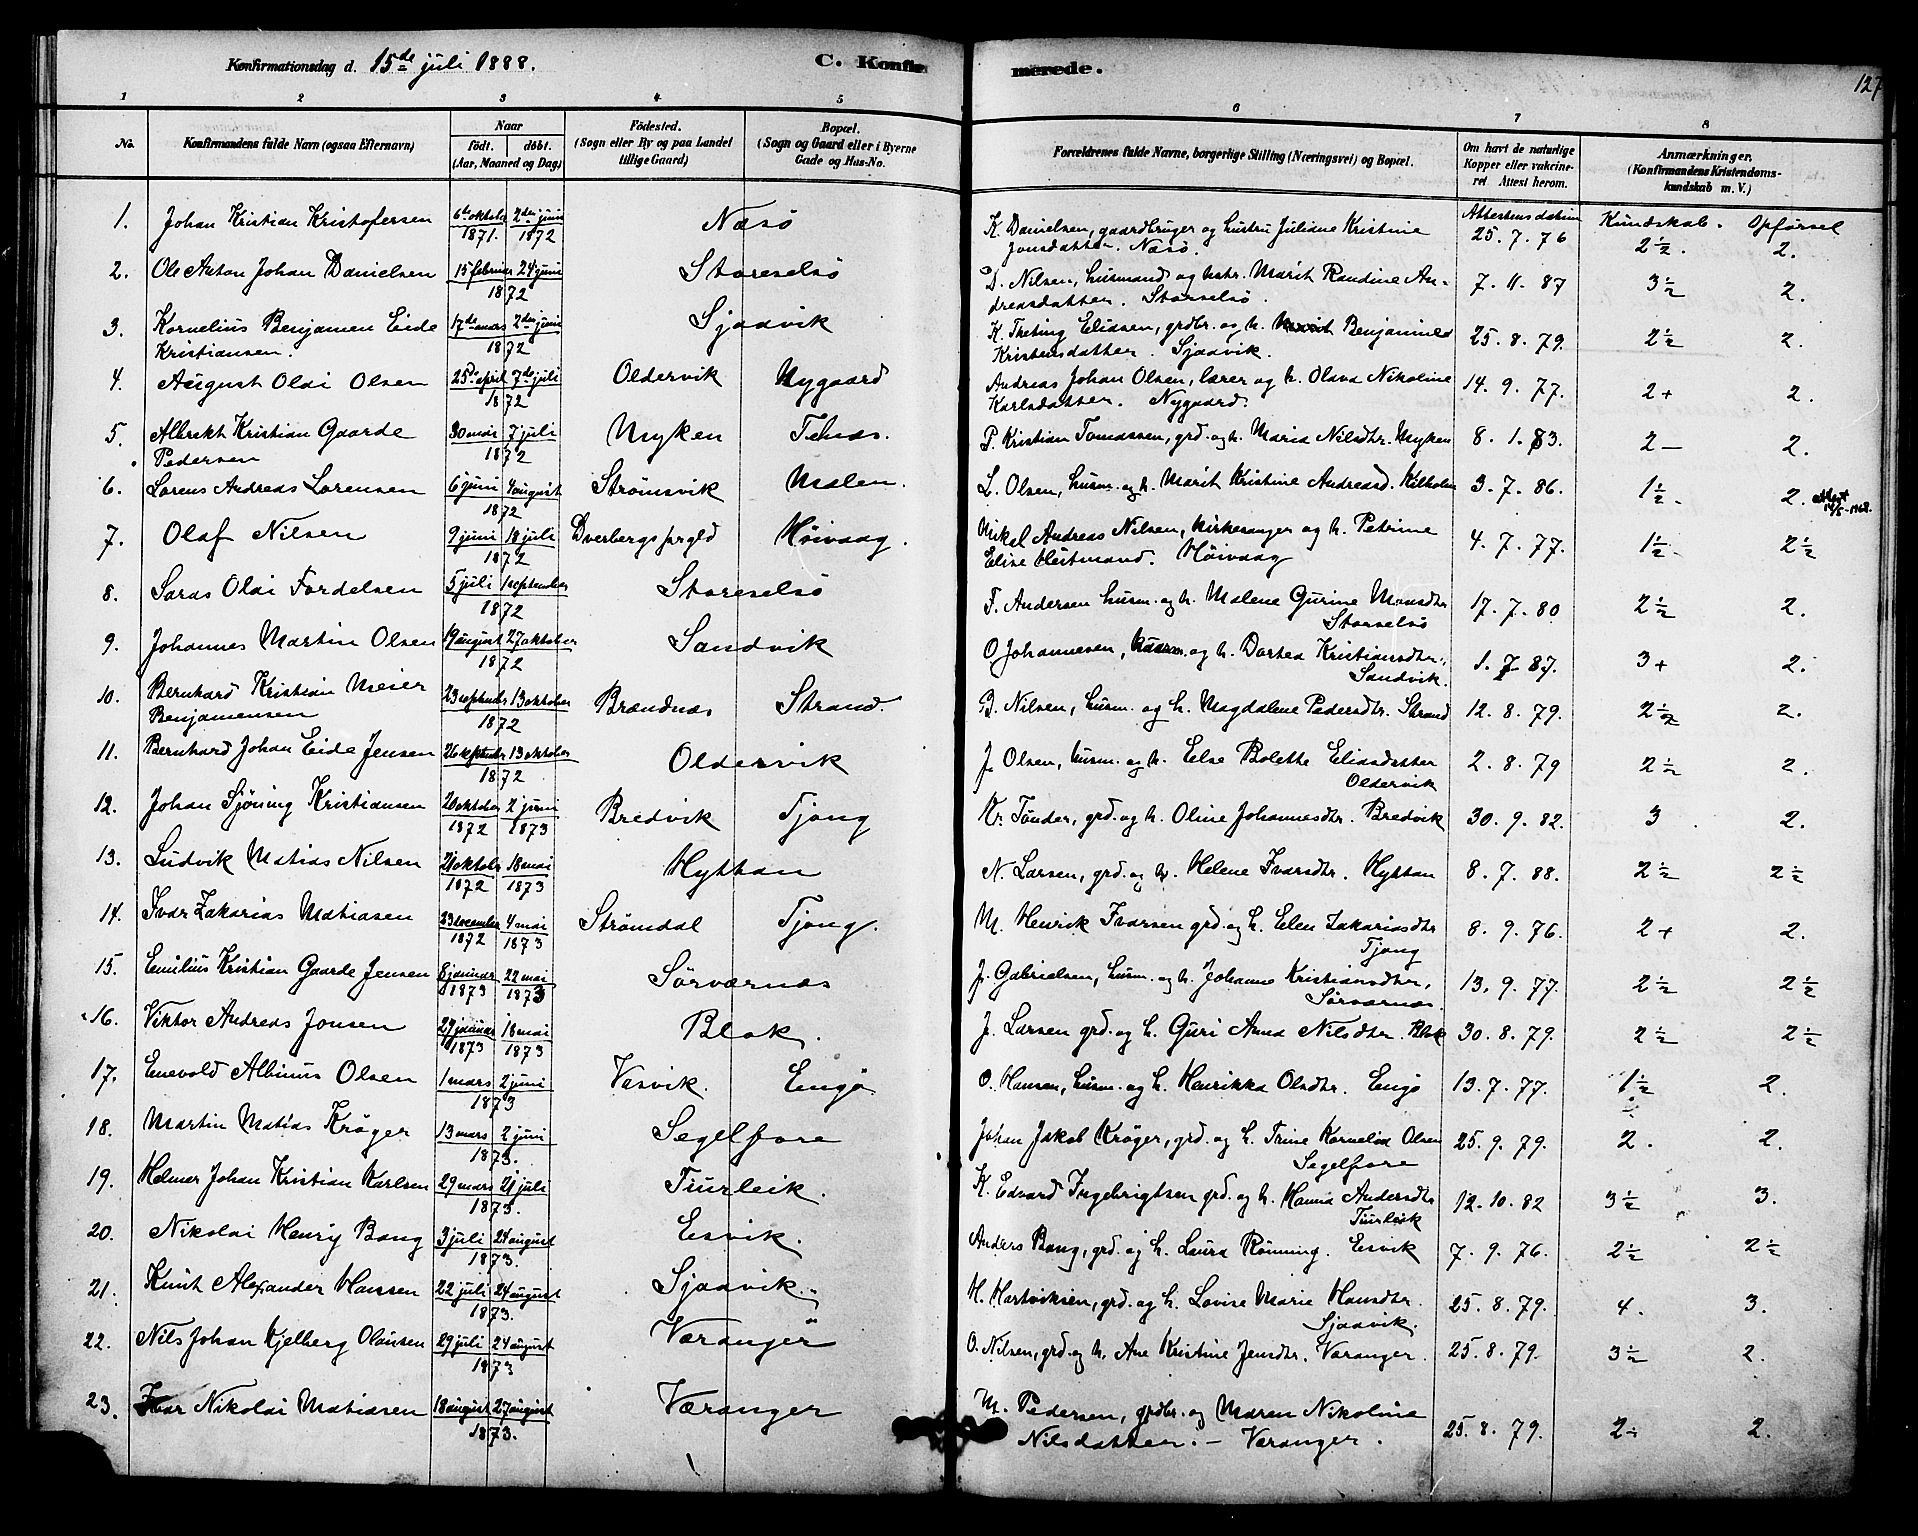 Konfirmationsdag d. 15de juli 1888.
C. Konfir merede.
127
1 2 3 4 5 6 7 8
No.
Konfirmandens fulde Navn (ogsaa Efternavn)
Naar
födt. döbt.
(Aar, Maaned og Dag)
Födested.
(Sogn eller By og paa Landet
tillige Gaard)
Bopæl.
(Sogn og Gaard eller i Byerne
Gade og Hus-No.
Forældrenes fulde Navne, borgerlige Stilling (Næringsvei) og Bopæl.
Om havt de naturlige
Kopper eller vakcine-
ret Attest herom.
Anmærkninger.
(Konfirmandens Kristendoms-
kundskab m. V.)
Attestens datum Kundskab. Opførsel
1. Johan Kristian Kristofersen 6te oktober 1871. 2den juni 1872 Næsö K. Danielsen, gaardbruger og hustru Juliane Kristine 25. 7. 76 2½. 2.
Jonsdatter. Næsö.
2. Ole Anton Johan Danielsen 15 februar 24 juni 1872 Storselsö D. Nilsen, husmand og hstr. Marit Randine An- 7. 11. 87 3½ 2.
dreasdatter. Storselsö.
3. Kornelius Benjamen Eide 17de mars 2den juni 1872 Sjaavik K. Theting Eliasen, grdbr. og h. Benjamine 25. 8. 79. 2½ 2.
Kristiansen. Kristensdatter. Sjaavik.
4. August Oldi Olsen 25 april 7de juli 1872 Oldervik Nygaard Andreas Johan Olsen, lærer og h. Olava Nikoline 14. 9. 77. 2+ 2.
Karlsdatter. Nygaard.
5. Albrekt Kristian Gaarde 30 mai 7 juli 1872 Myken P. Kristian Tomassen, grd. og h. Maria Nilsdtr. Myken 8. 1. 83. 2— 2.
Pedersen
6. Lorens Andreas Lorensen 6 juni 4 august 1872 Strømsvik Malen. L. Olsen, husm. og h. Marit Kristine Andreasd. Kilholm 3. 7. 86. 1½. 2.
7. Olaf Nilsen 9 juni 18 juli 1872 Dverbergs prgld Höivaag. Mikal Andreas Nilsen, kirkesanger og h. Petrine 4. 7. 77. 1½. 2½
Elise Heitmand. Höivaag
8. Saras Oldi Fordelsen 5 juli 1 september 1872 Storselsö F. Andersen husm. og h. Malene Gurine Monsdtr 17. 7. 80 2½ 2.
Storselsö
9. Johannes Martin Olsen 19 august 27 oktober 1872 Sandvik O Johannesen, husm. og h. Dortea Kristiansdtr. 1. 7. 87. 3+ 2.
Sandvik.
10. Bernhard Kristian Meier 23 september 13 oktober 1872 Brændnæs Strand. B. Nilsen, husm. og h. Magdalene Pedersdtr. Strand 12. 8. 79. 2½ 2.
Benjamensen
11. Bernhard Johan Eide Jensen 26 september 13 oktober 1872 Oldervik J. Olsen, husm. og h. Else Bolette Eliasdatter 2. 8. 79 2½ 2.
Oldervik
12. Johan Sjöning Kristiansen oktober 1872 2 juni 1873 Bredvik Tjong Kr. Tönder, grd. og h. Oline Johannesdtr. Bredvik 30. 9. 82. 3 2.
13. Ludvik Matias Nilsen 21 oktober 1872 18 mai 1873 Hyttan N. Larsen, grd. og h. Helene Ivarsdtr. Hyttan 8. 7. 88. 2½ 2½
14. Ivar Zakarias Matiasen 23 december 1872 4 mai 1873 Strömdal Tjong. M. Henrik Ivarsen grd. og h. Elen Zakariasdtr 8. 9. 76. 2+ 2.
Tjong
15. Emilius Kristian Gaarde Jensen 8 januar 1873 22 mai 1873 Sörværnæs J. Gabrielsen, husm. og h. Johanne Kristiansdtr, 13. 9. 77. 2½ 2½
Sörværnæs
16. Viktor Andreas Jonsen 27 januar 1873 18 mai 1873 Blok. J. Larsen grd. og h. Guri Anna Nilsdtr. Blok 30. 8. 79. 2½ 2½
17. Enevold Albinus Olsen 1 mars 2 juni 1873 Vesvik. Engö O. Hansen, husm. og h. Henrikka Olsdtr. Engö 13. 7. 77. 1½ 2.
18. Martin Matias Kröger 13 mars 2 juni 1873. Segelfore Johan Jakob Kröger, grd. og h. Trine Kornelia Olsen 25. 9. 79. 2. 2.
Segelfore
19. Helmer Johan Kristian Karlsen 29 mars 21 juli 1873. Tiurleik. K. Edvard Ingebrigtsen grd. og h. Hanna Andersdtr 12. 10. 82 3½ 3.
Tiurleik
20. Nikolai Henry Bang 3 juli 24 august 1873. Esvik. Anders Bang, grd. og h. Laura Rönning. Esvik 7. 9. 76. 2½ 2½
21. Knut Alexander Hansen 22 juli 24 august 1873. Sjaavik. H. Hartviksen, grd. og h. Lovise Marie Hansdtr. 25. 8. 79. 4. 3.
Sjaavik.
22. Nils Johan Kjelberg Olausen 29 juli 24 august 1873 Væranger O. Nilsen, grd. og h. Ane Kristine Jensdtr. Væranger. 25. 8. 79. 3½ 2.
23. Ivar Nikolai Matiasen 18 august 27 august 1873. Væranger M. Pedersen, grdbr. og Maren Nikoline 25. 8. 79. 2÷ 2.
Nilsdatter. — Væranger.